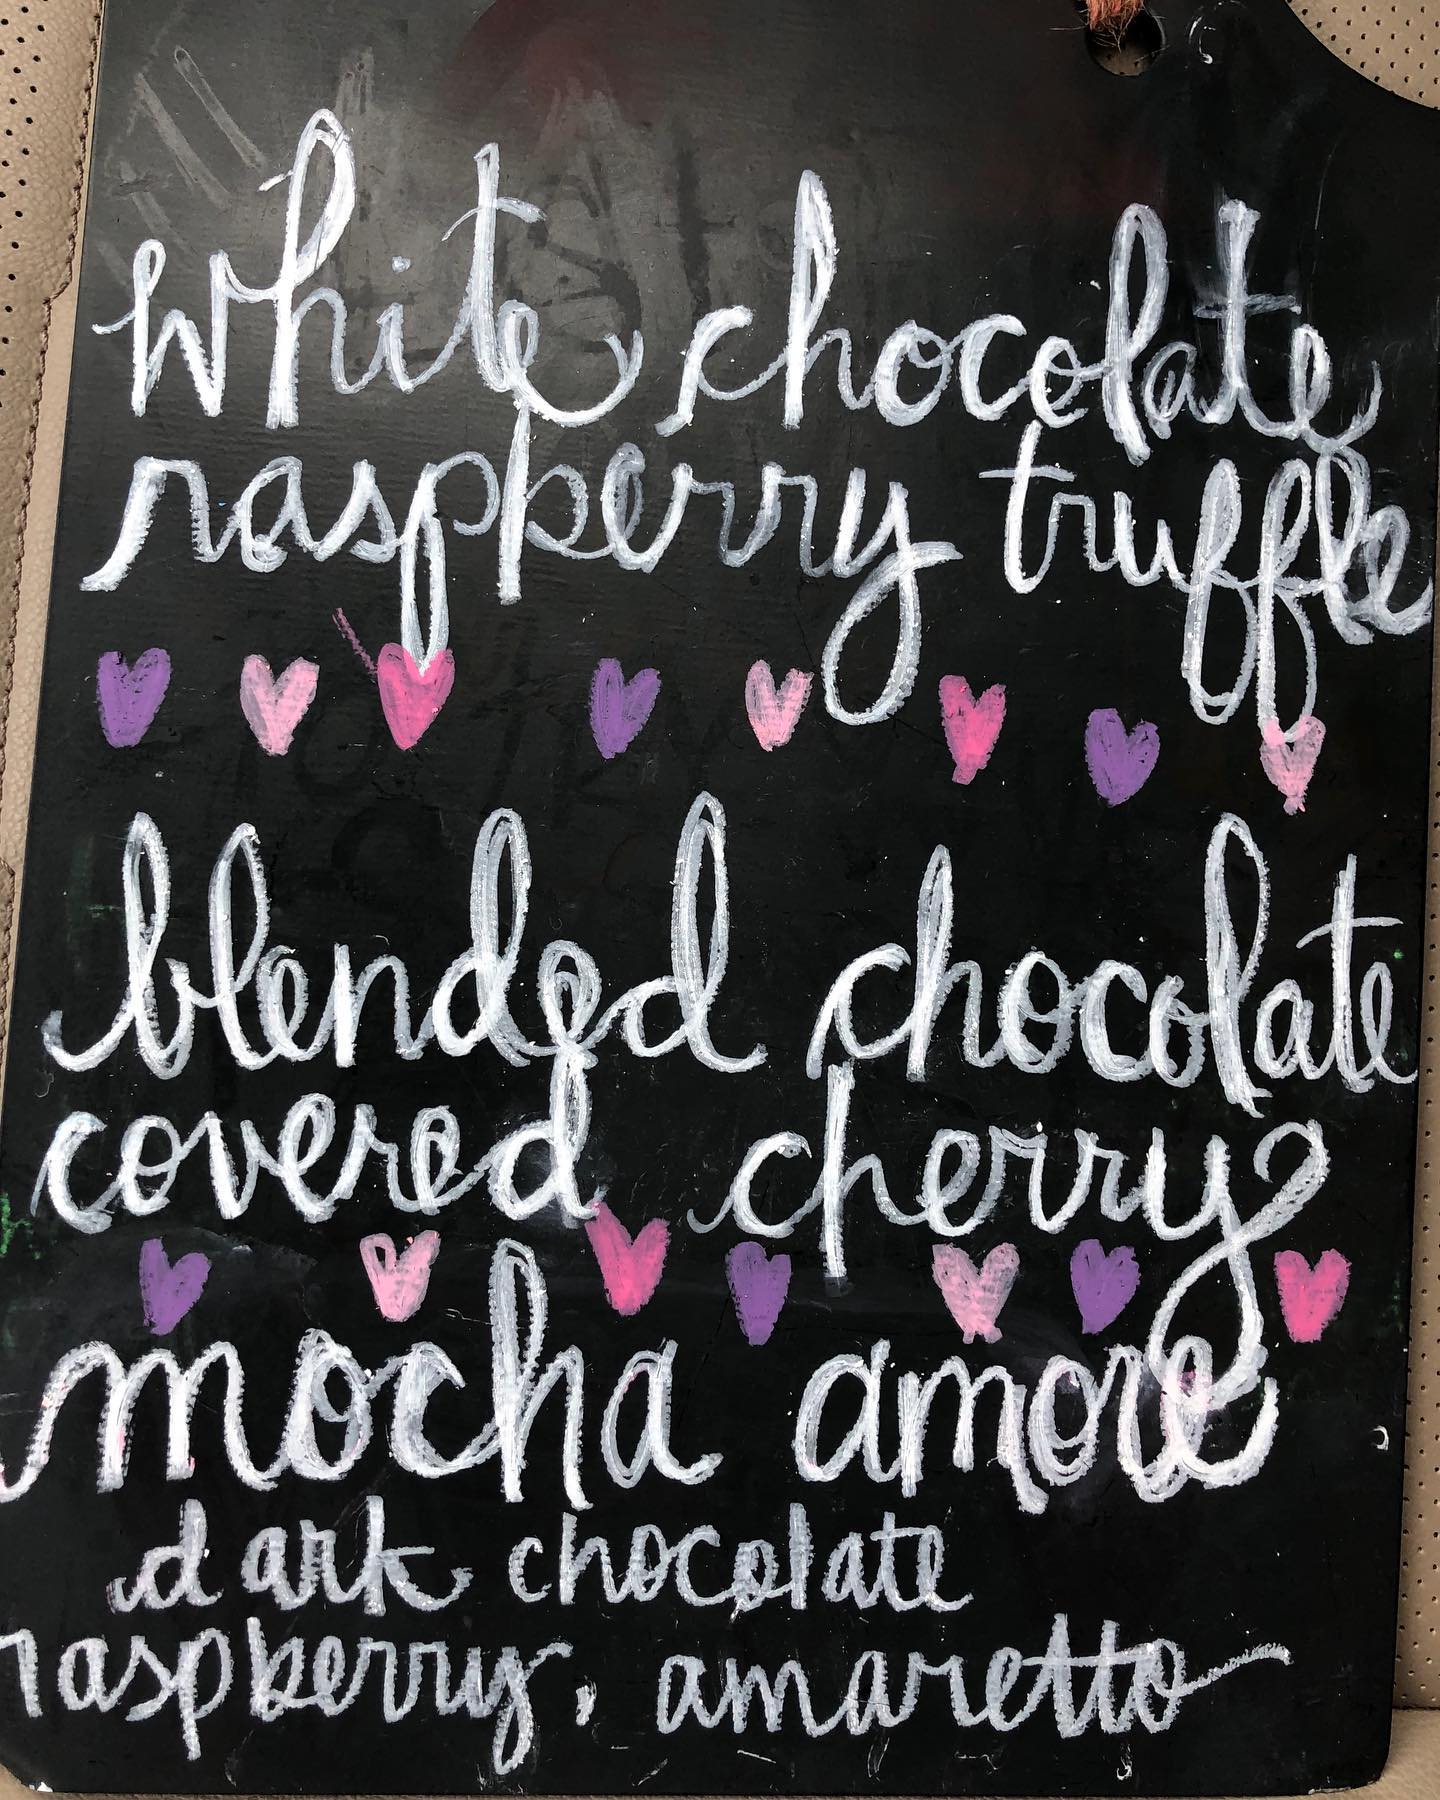 white chocolate
raspberry truffle
blended chocolate
covered cherry
mocha amore
dark chocolate
raspberry, amaretto